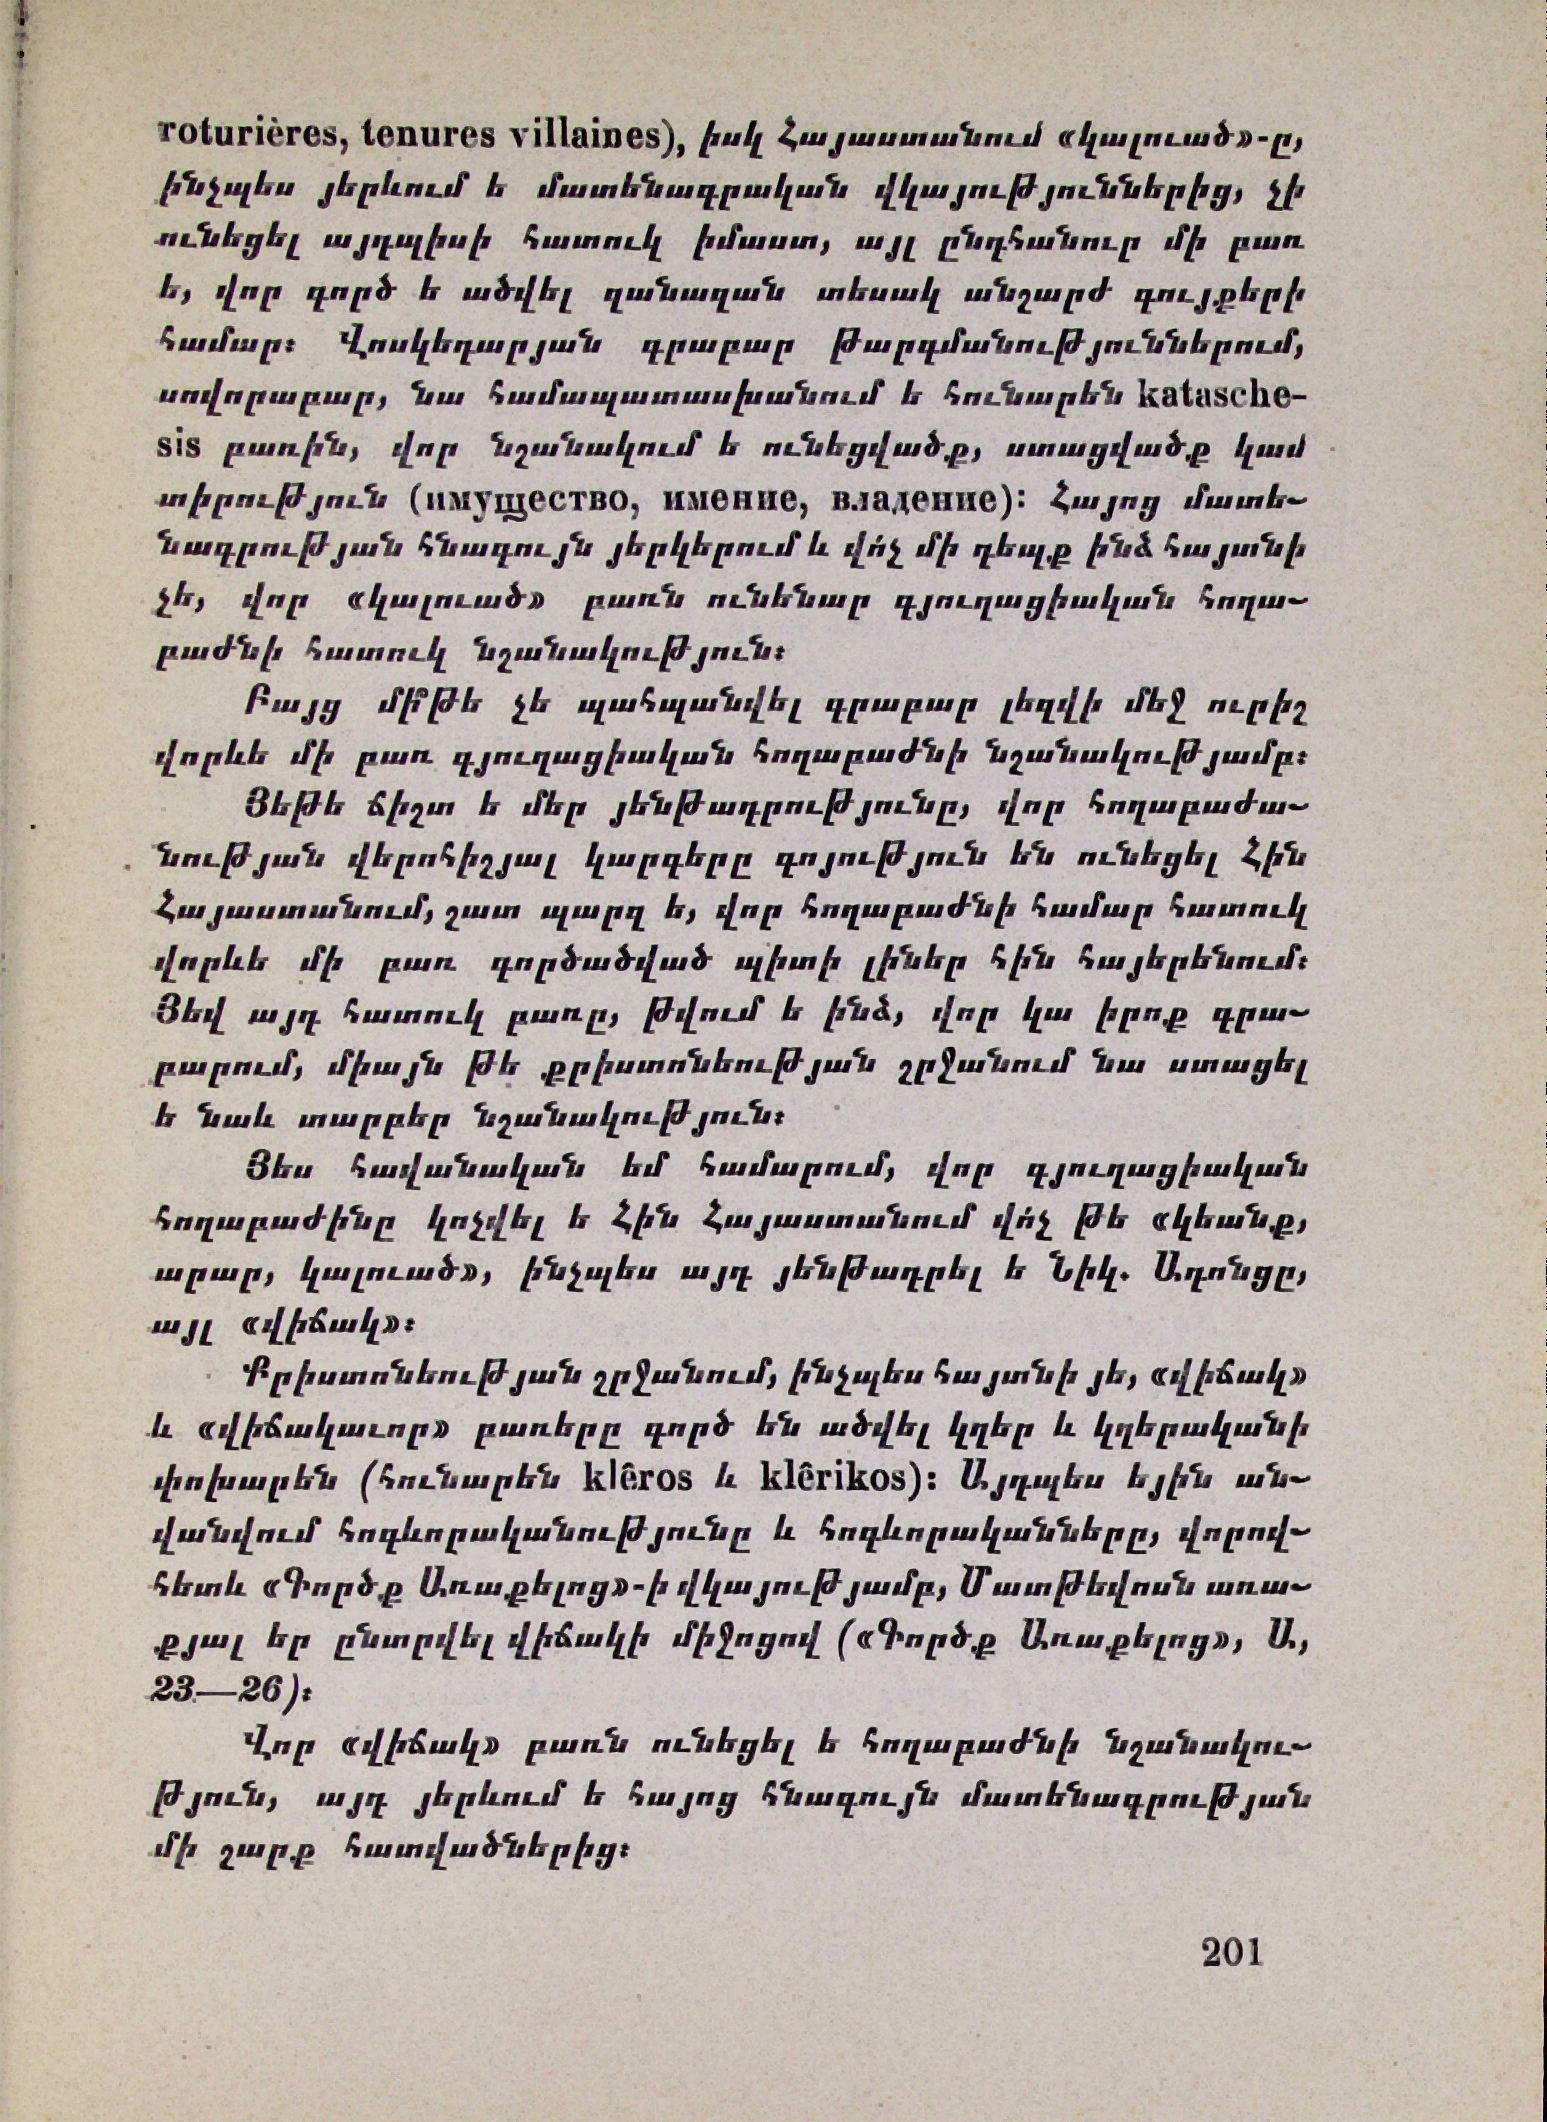 roturières, tenures villaines), իսկ Հայաստանում «կալուած»-ը,
ինչպես յերևում ե մատենագրական վկայություններից, չի
ունեցել այդպիսի հատուկ իմաստ, այլ ընդհանուր մի բառ
ե, վոր գործ ե ածվել զանազան տեսակ անշարժ գույքերի
համար։ Վոսկեդարյան գրաբար թարգմանություններում,
սովորաբար, նա համապատասխանում ե հունարեն katasche-
sis բառին, վոր նշանակում ե ունեցվածք, ստացվածք կամ
տիրություն (имущество, имение, владение)։ Հայոց մատե-
նագրության հնագույն յերկերում և վո՛չ մի դեպք ինձ հայտնի
չե, վոր «կալուած» բառն ունենար գյուղացիական հողա-
բաժնի հատուկ նշանակություն։
Բայց մի՞թե չե պահպանվել գրաբար լեզվի մեջ ուրիշ
վորևե մի բառ գյուղացիական հողաբաժնի նշանակությամբ։
Յեթե ճիշտ ե մեր յենթադրությունը, վոր հողաբաժա-
նության վերոհիշյալ կարգերը գոյություն են ունեցել Հին
Հայաստանում, շատ պարզ ե, վոր հողաբաժնի համար հատուկ
վորևե մի բառ գործածված պիտի լիներ հին հայերենում։
Յեվ այդ հատուկ բառը, թվում ե ինձ, վոր կա իրոք գրա-
բարում, միայն թե քրիստոնեության շրջանում նա ստացել
ե նաև տարբեր նշանակություն։
Յես հավանական եմ համարում, վոր գյուղացիական
հողաբաժինը կոչվել ե Հին Հայաստանում վո՛չ թե «կեանք,
արար, կալուած», ինչպես այդ յենթադրել ե Նիկ. Ադոնցը,
այլ «վիճակ»։
Քրիստոնեության շրջանում, ինչպես հայտնի յե, «վիճակ»
և «վիճակաւոր» բառերը գործ են ածվել կղեր և կղերականի
փոխարեն (հունարեն klêros և klêrikos)։ Այդպես եյին ան-
վանվում հոգևորականությունը և հոգևորականները, վորով-
հետև «Գործք Առաքելոց»-ի վկայությամբ, Մատթեվոսն առա-
քյալ եր ընտրվել վիճակի միջոցով («Գործք Առաքելոց», Ա,
23—26)։
Վոր «վիճակ» բառն ունեցել ե հողաբաժնի նշանակու-
թյուն, այդ յերևում ե հայոց հնագույն մատենագրության
մի շարք հատվածներից։
201